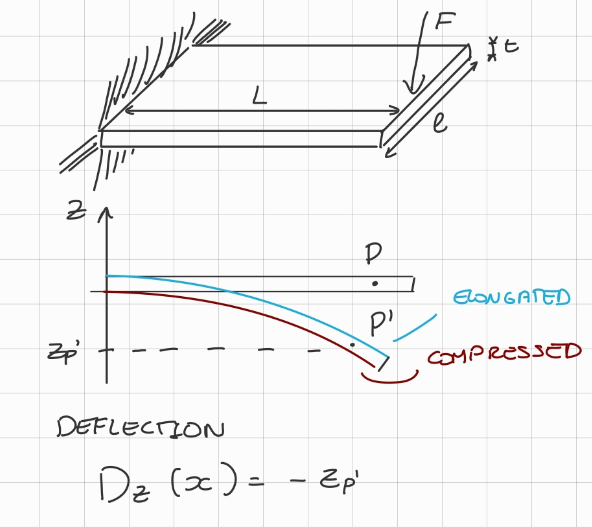 F
t
L
l
Z
P
ELONGATED
P'
Zp'
COMPRESSED
DEFLECTION
Dz (x) = - Zp'